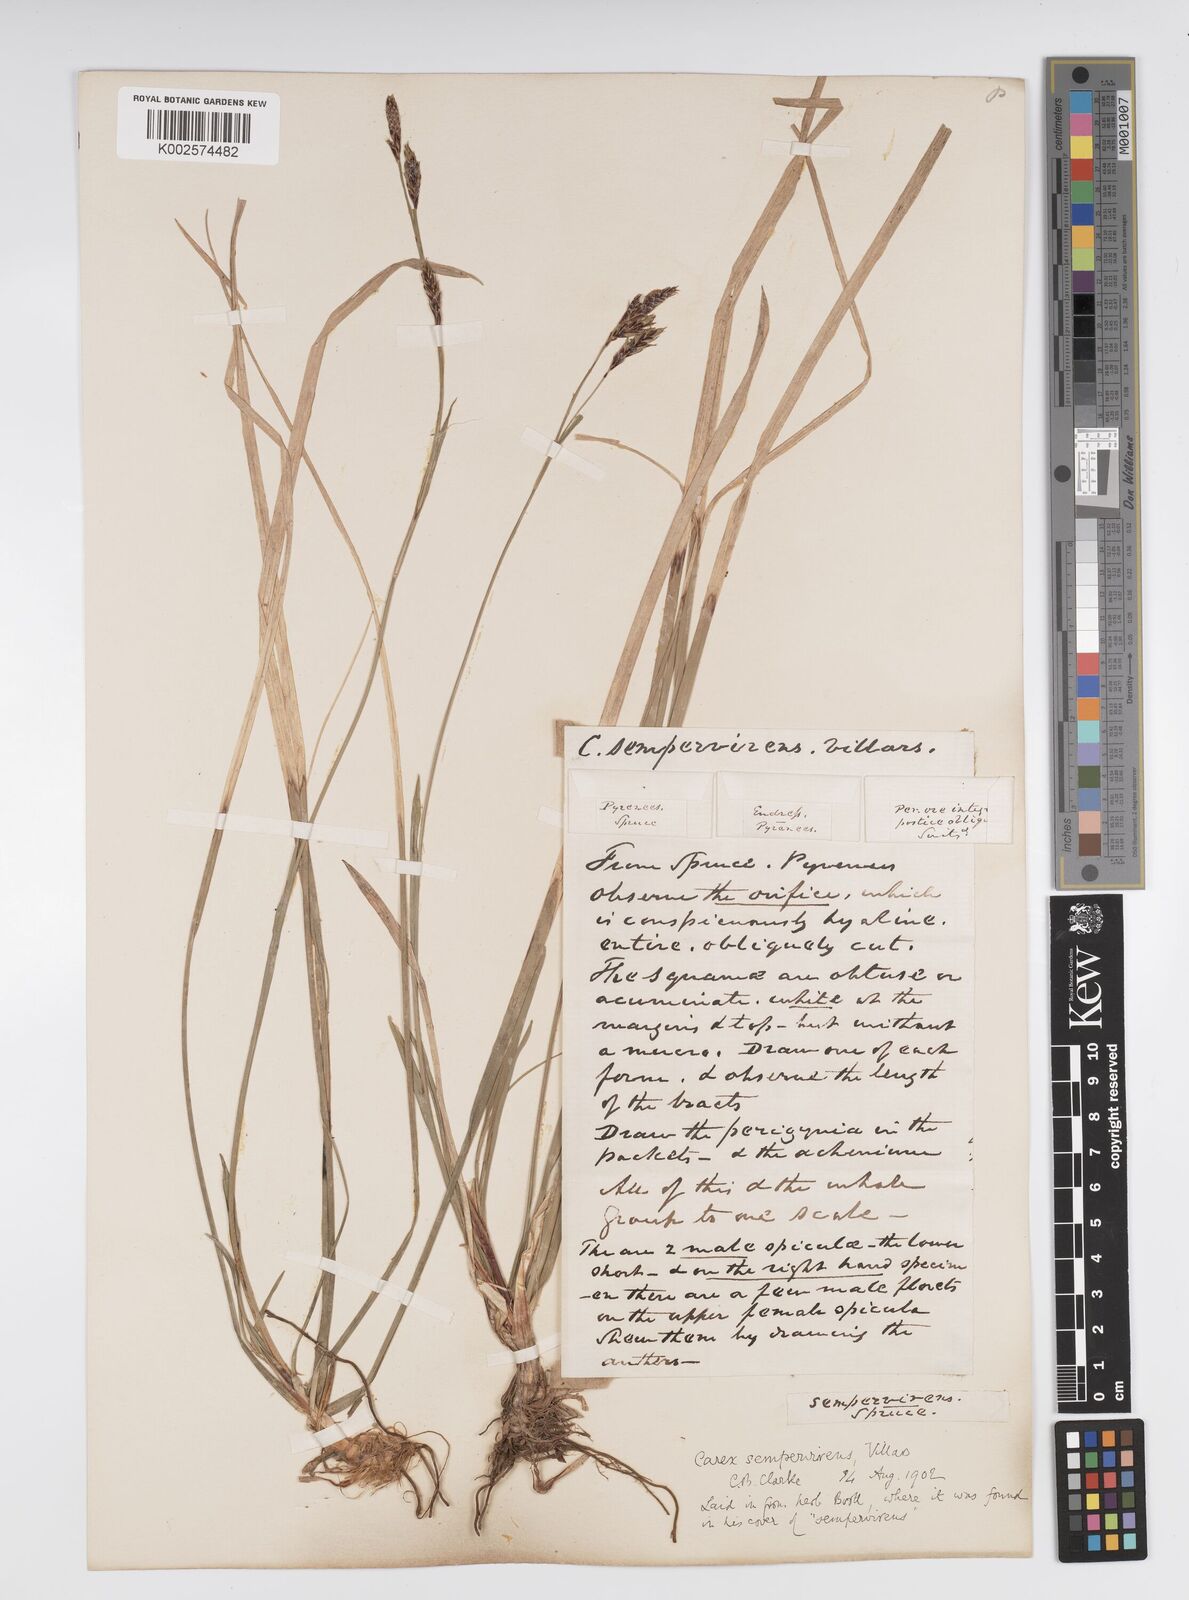 ROYAL BOTANIC GARDENS KEW
K002574482
C. sempervirens. Villars.
Pyrenees.
Spruce
Endress.
Pyrenees.
Per. ore integr
postice obliqu
From Spruce. Pyrenees
observe the orifice, which
is conspicuously hyaline.
entire. obliquely cut.
The squamæ are obtuse or
acuminate. white at the
margins & top - but without
a mucro. Draw one of each
form. & observe the length
of the bracts
Draw the perigynia in the
packets - & the achenium
All of this & the whole
group to one scale -
The are 2 male spiculæ - the lower
short - & on the right hand specim
-en there are a few male florets
on the upper female spicula
Shew them by drawing the
anthers -
sempervirens.
Spruce.
Carex sempervirens, Villars
C.B. Clarke 24 Aug. 1902
Laid in from herb Boott, where it was found
in his cover of "sempervirens"
centimeters
inches
Density
M001007
Don Williams
Royal Botanic Gardens
Kew
0 1 2 3 4 5 6 7 8 9 10
cm
copyright reserved